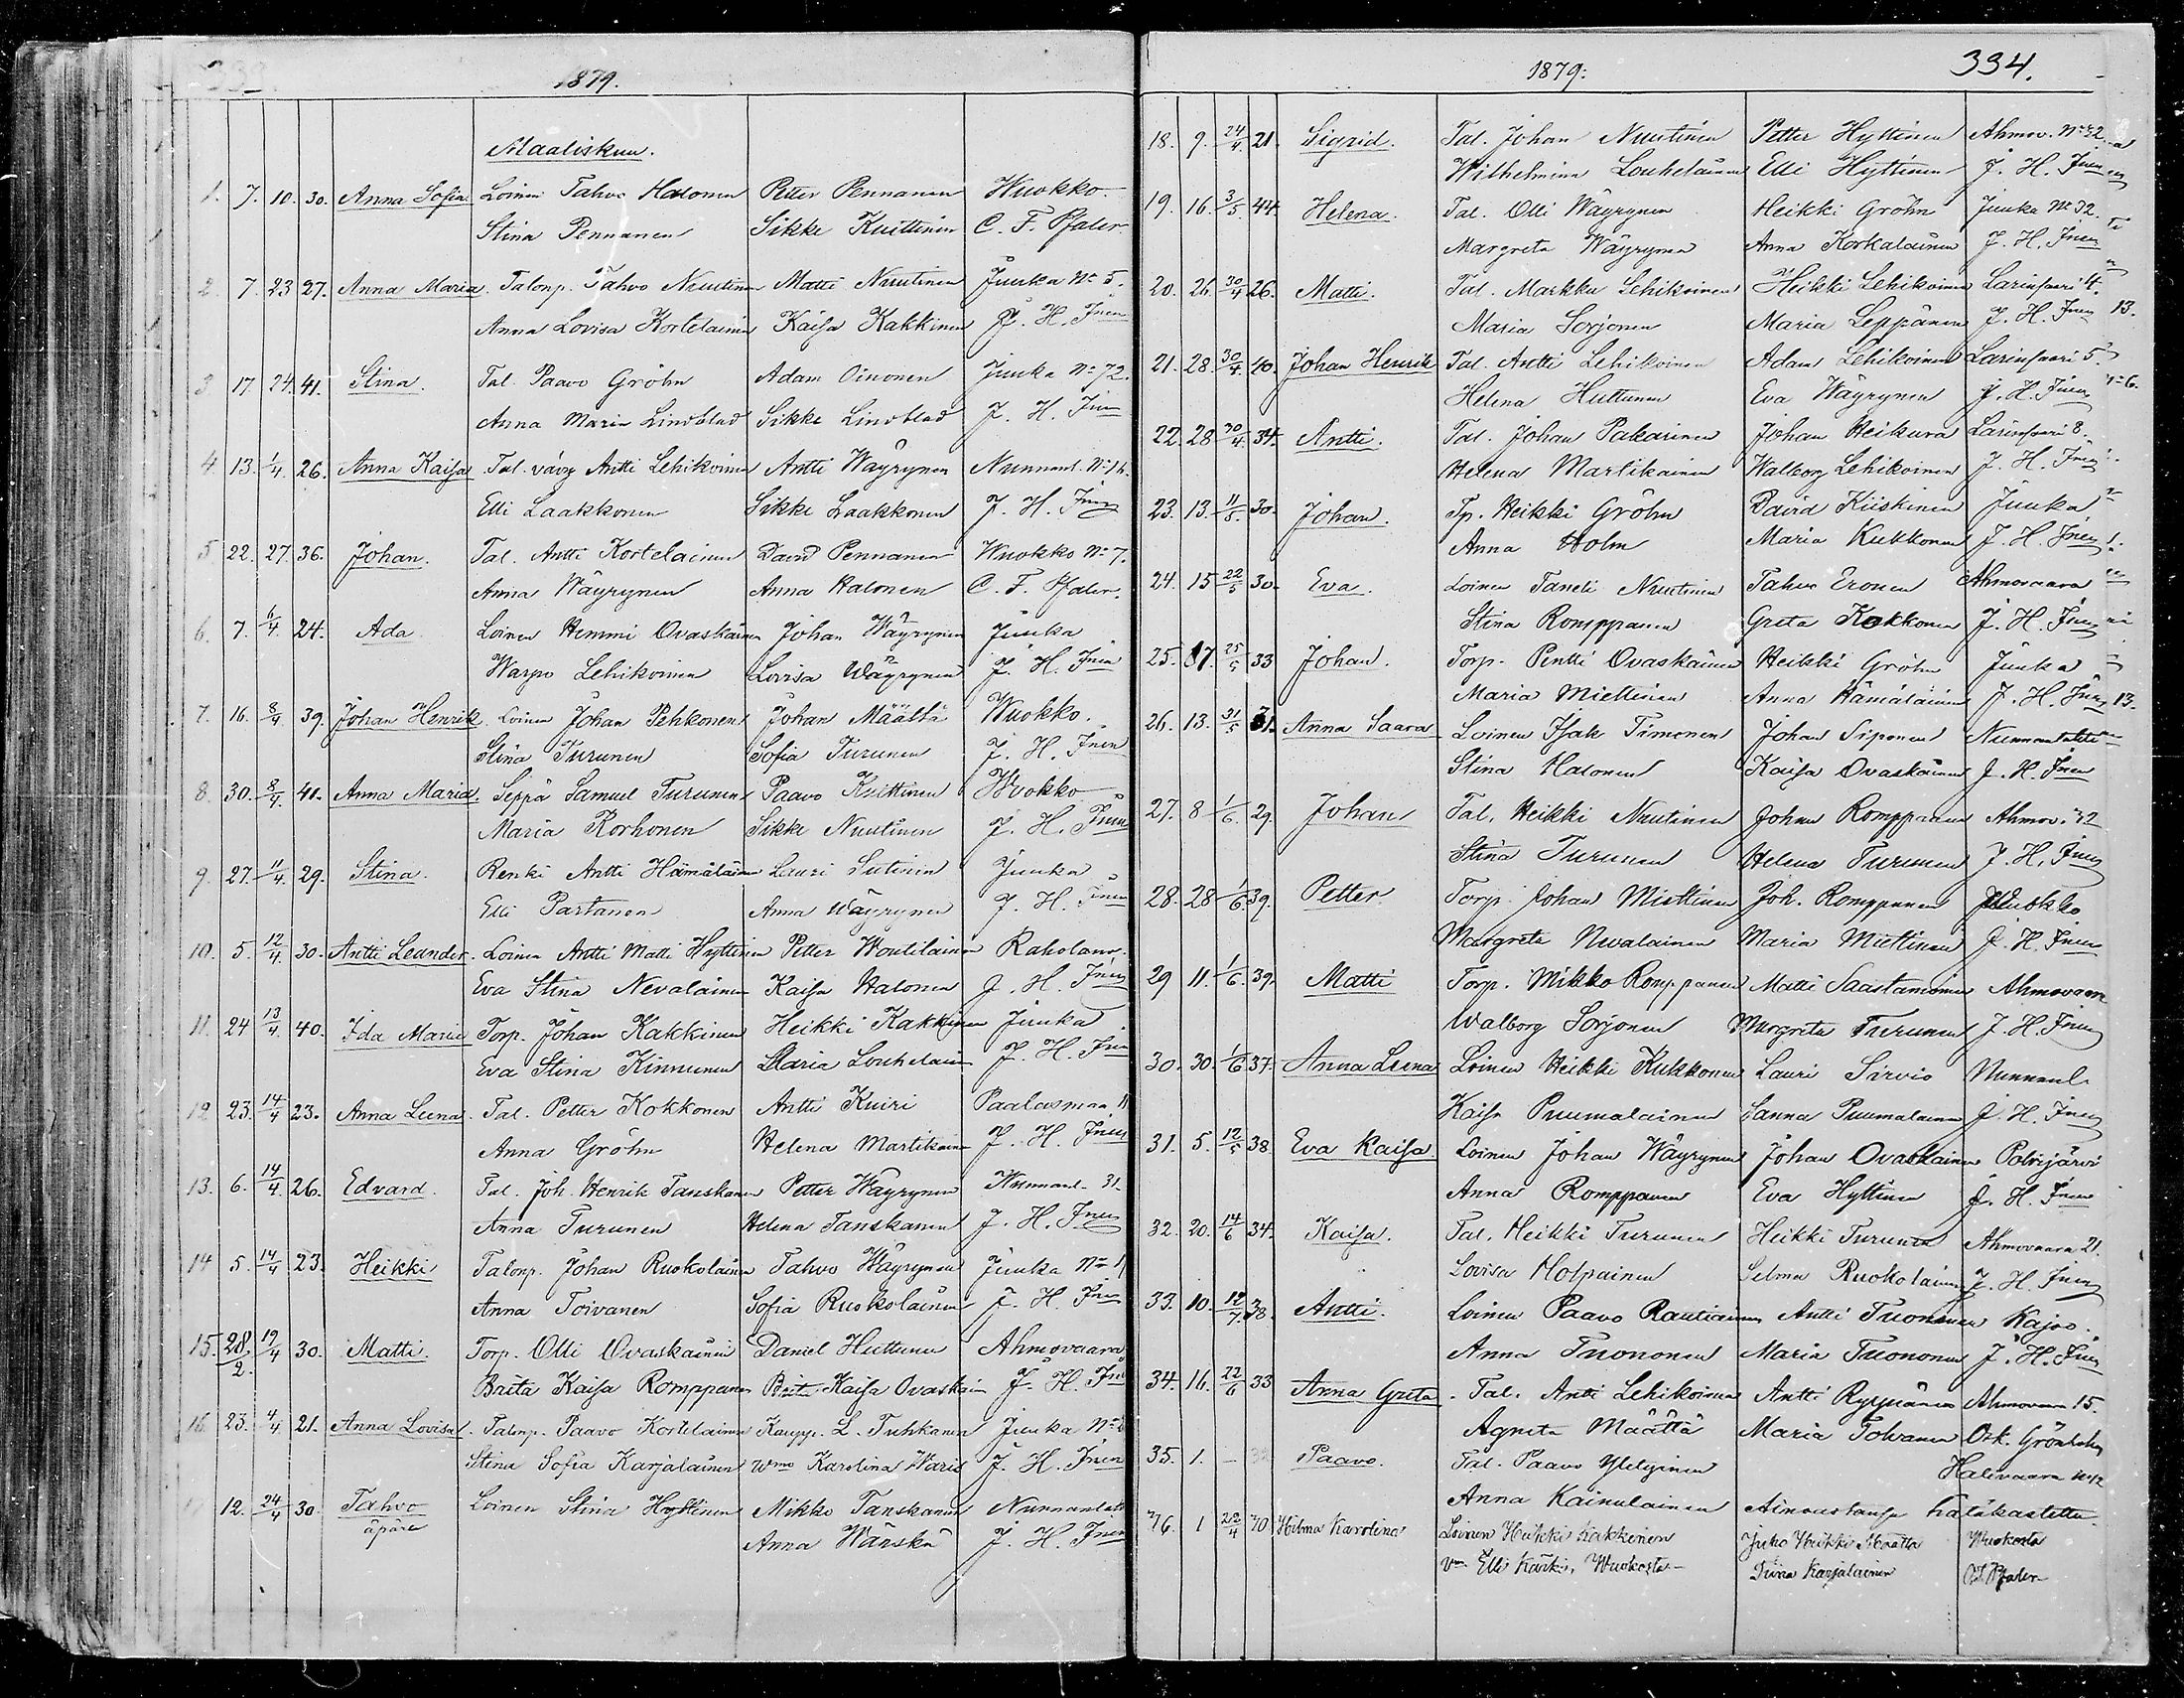 1879.
Maaliskuu.
1. 7. 10. 30. Anna Sofia Loinen Tahvo Halonen Petter Pennanen Wuokko
Stina Pennanen Sikke Kuittinen C. F. Pfaler.
2. 7. 23 27. Anna Maria. Talonp. Tahvo Nuutinen Matti Nuutinen Juuka No 5.
Anna Lovisa Kortelainen Kaisa Kakkinen J. H. Jnen
3 17 24. 41. Stina. Tal. Paavo Gröhn Adam Oinonen Juuka No 72.
Anna Maria Lindblad Sikke Lindblad J. H. Jnen
4 13. 1/4. 26. Anna Kaisa Tal. vävy Antti Lehikoinen Antti Wäyrynen Nunnanl. No 14.
Elli Laakkonen Sikke Laakkonen J. H. Jnen
5 22. 27. 36. Johan. Tal. Antti Kortelainen David Pennanen Wuokko No 7.
Anna Wäyrynen Anna Halonen C. F. Pfaler.
6. 7. 6/4 24. Ada. Loinen Hemmi Ovaskainen Johan Wäyrynen Juuka
Warpu Lehikoinen Lovisa Wäyrynen J. H. Jnen
7. 16. 8/4 39. Johan Henrik. Loinen Johan Pehkonen Johan Määttä Wuokko.
Stina Turunen Sofia Turunen J. H. Jnen
8. 30. 8/4. 41. Anna Maria. Seppä Samuel Turunen Paavo Kuittinen Wuokko
Maria Korhonen Sikke Nuutinen J. H. Jnen
9. 27. 11/4. 29. Stina. Renki Antti Hämäläinen Lauri Sutinen Juuka
Elli Partanen Anna Wäyrynen J. H. Jnen
10. 5. 12/4. 30. Antti Leander. Loinen Antti Matti Hyttinen Petter Woutilainen
Eva Stina Nevalainen Kaisa Halonen J. H. Jnen
11. 24 13/4. 40. Ida Maria Torp. Johan Kakkinen Heikki Kakkinen Juuka
Eva Stina Kinnunen Maria Louhelainen J. H. Jnen
12 23. 14/4 23. Anna Leena. Tal. Petter Kokkonen Antti Kuiri Paalasmaa 11
Anna Gröhn Helena Martikainen J. H. Jnen
13. 6. 14/4. 26. Edvard. Tal. Joh. Henrik Tanskanen Petter Wäyrynen Nunnanl. 31.
Anna Turunen Helena Tanskanen J. H. Jnen
14 5. 14/4 23. Heikki Talonp. Johan Ruokolainen Tahvo Wäyrynen Juuka No
Anna Toivanen Sofia Ruokolainen J. H. Jnen
15. 28/2. 19/4 30. Matti. Torp. Olli Ovaskainen Daniel Huttunen Ahmovaara
Brita Kaisa Romppanen Brita Kaisa Ovaskain J. H. Jn
16 23. 4/4 21. Anna Lovisa. Talonp. Paavo Kortelainen Kaupp. L. Tuhkanen Juuka No
Stina Sofia Karjalainen Wmo Karolina Waris J. H. Jnen
12. 24/4 30. Tahvo Loinen Stina Hyttinen Mikko Tanskanen Nunnanlahti
äpäre Anna Wänskä J. H. Jnen
1879: 334.
18. 9. 24/4. 21. Sigrid. Tal. Johan Nuutinen Petter Hyttinen Ahmov. No 32
Wilhelmina Louhelainen Elli Hyttinen J. H. Jnen
19. 16. 3/5. 44. Helena. Tal. Olli Wäyrynen Heikki Gröhn Juuka No 32.
Margreta Wäyrynen Anna Korkalainen J. H. Jnen
20. 26. 30/4 26. Matti. Tal. Markku Lehikoinen Heikki Lehikoinen Larinsaari 4.
Maria Sorjonen Maria Leppänen J. H. Jnen 13.
21. 28. 30/4. 40. Johan Henrik Tal. Antti Lehikoinen Adam Lehikoinen Larinsaari 5
Helena Huttunen Eva Wäyrynen J. H. Jnen
22. 28 30/4. 34. Antti. Tal. Johan Pakarinen Johan Heikura Larinsaari 8.
Helena Martikainen Walborg Lehikoinen J. H. Jnen
23. 13. 11/5. 30. Johan. Tp. Heikki Gröhn David Kiiskinen Juuka
Anna Holm Maria Kukkonen J. H. Jnen
24. 15 22/5 30. Eva. Loinen Taneli Nuutinen Tahvo Eronen Ahmovaara
Stina Romppanen Greta Kokkonen J. H. Jnen
25. 17. 25/5 33 Johan. Torp. Pentti Ovaskainen Heikki Gröhn Juuka
Maria Miettinen Anna Hämäläinen J. H. Jnen 13.
26. 13. 31/5 31. Anna Saara Loinen Isak Timonen Johan Siponen Nunnanlahti
Stina Halonen Kaisa Ovaskainen J. H. Jnen
27. 8 1/6. 29. Johan Tal. Heikki Nuutinen Johan Romppanen Ahmov. 32
Stina Turunen Helena Turunen J. H. Jnen
28. 28 1/6. 39. Petter. Torp. Johan Miettinen Joh. Romppanen Wuokko
Margreta Nevalainen Maria Miettinen J. H. Jnen
29 11. 1/6. 39. Matti Torp. Mikko Romppanen Matti Saastamoinen Ahmovaara
Walborg Sorjonen Margreta Turunen J. H. Jnen
30. 30. 1/6 37. Anna Leena Loinen Heikki Kukkonen Lauri Sirvio Nunnanl.
Kaisa Puumalainen Sanna Puumalainen J. H. Jnen
31. 5. 12/5 38 Eva Kaisa Loinen Johan Wäyrynen Johan Ovaskainen Polvijärvi
Anna Romppanen Eva Hyttinen J. H. Jnen
32. 20. 14/6 34. Kaisa. Tal. Heikki Turunen Heikki Turunen Ahmovaara 21.
Lovisa Holpainen Selma Ruokolainen J. H. Jnen
33. 10. 12/7. 38. Antti. Loinen Paavo Rautiainen Antti Tuononen Kajoo.
Anna Tuononen Maria Tuononen J. H. Jnen
34. 16. 22/6 33 Anna Greta. Tal. Antti Lehikoinen Antti Ryynänen Ahmovaara 15.
Agneta Määttä Maria Tolvanen Osk. Gröndahl
35. 1. – Paavo. Tal. Paavo Yletyinen Halivaara No 12
Anna Kainulainen Ainoastansa hätäkastettu.
36. 1 22/4 30 Hilma Karolina Loinen Heikki Kakkinen Juho Heikki Määttä Wuokosta
Vm. Elli Kärki, Wuokosta – Tiina Karjalainen C.F. Pfaler